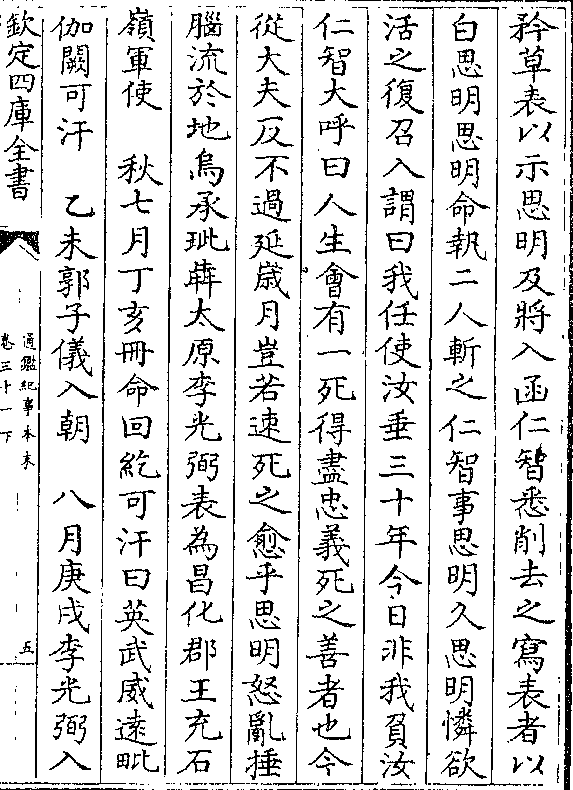 矜草表以示思明及將入函仁智悉削去之寫表者以
白思明思明命執二人斬之仁智事思明久思明憐欲
活之復召入謂曰我任使汝垂三十年今日非我負汝
仁智大呼曰人生會有一死得盡忠義死之善者也今
從大夫反不過延歳月豈若速死之愈乎思明怒亂捶
腦流於地烏承玼犇太原李光弼表為昌化郡王充石
嶺軍使　秋七月丁亥冊命回紇可汗曰英武威遠毗
伽闕可汗　乙未郭子儀入朝　八月庚戌李光弼入
欽定四庫全書
通鑑紀事本末
卷三十一下
五